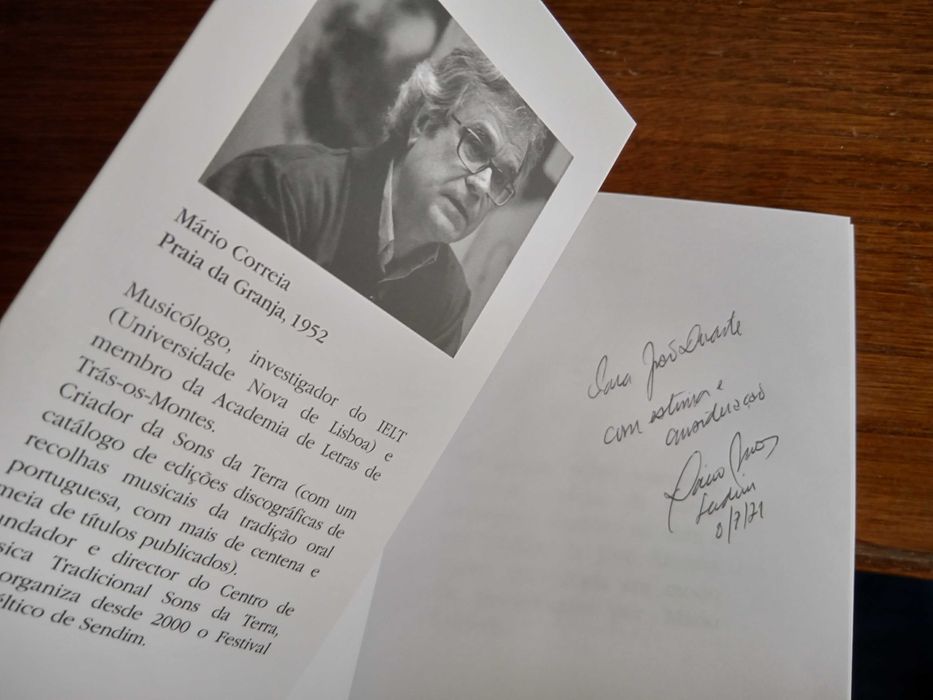 Mário Correia
Praia da Granja, 1952
Musicólogo, investigador do IELT
(Universidade Nova de Lisboa) e
membro da Academia de Letras de
Trás-os-Montes.
Criador da Sons da Terra (com um
catálogo de edições discográficas de
recolhas musicais da tradição oral
portuguesa, com mais de centena e
meia de títulos publicados).
undador e director do Centro de
sica Tradicional Sons da Terra,
organiza desde 2000 o Festival
éltico de Sendim.
Para José Duarte
com estima e
consideração
Sendim